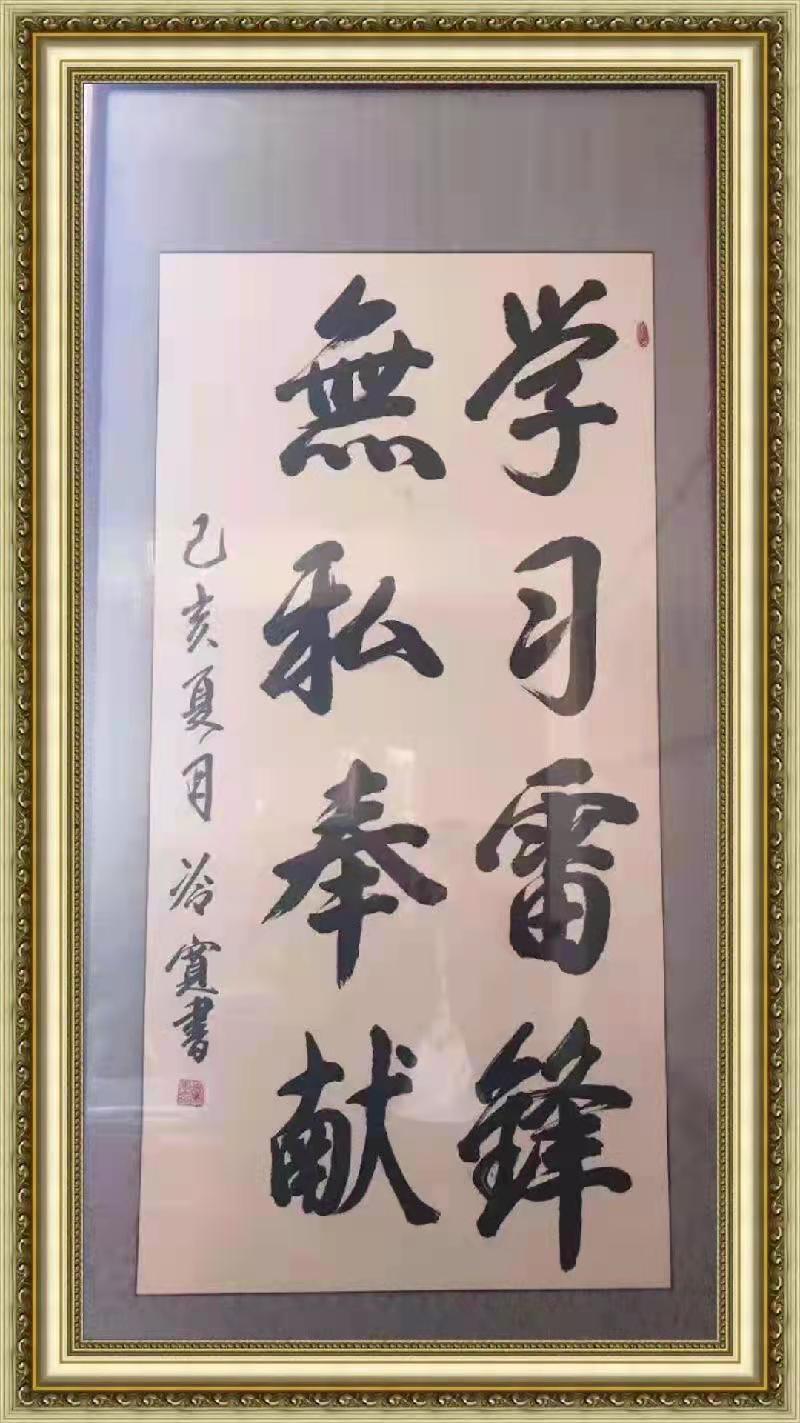 学习雷锋
無私奉献
己亥夏月 谷寬書